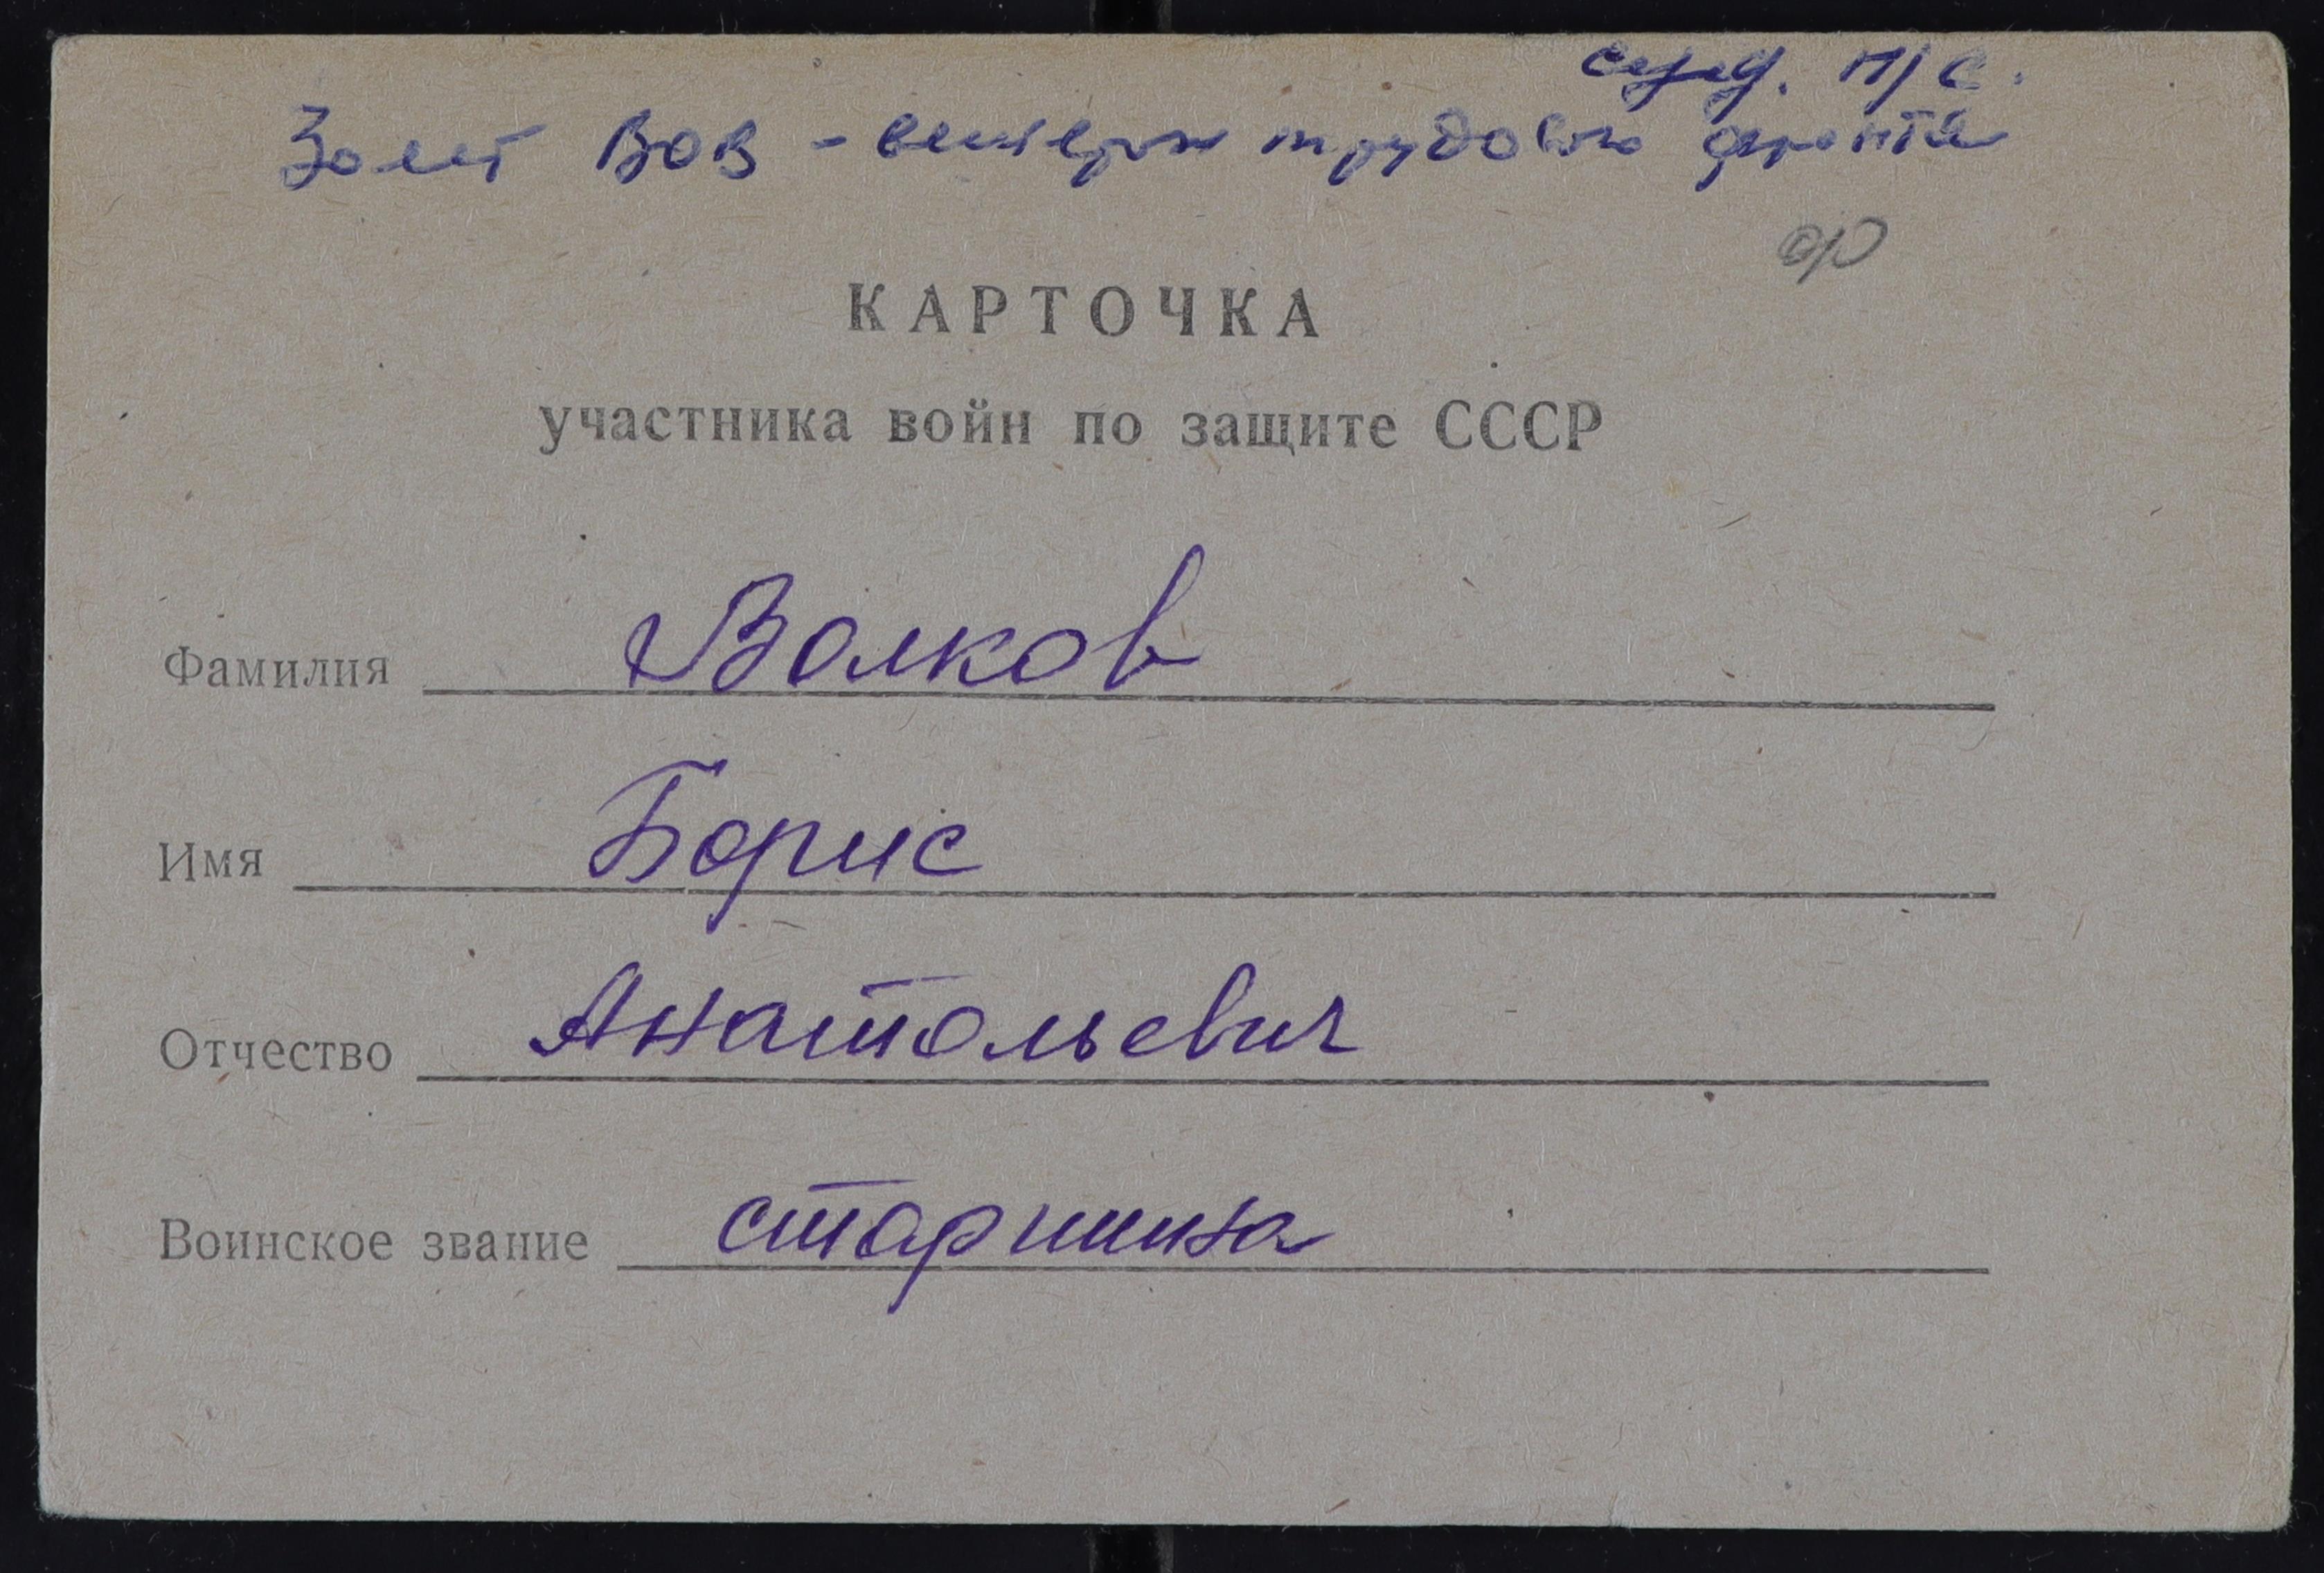 н/с.
ВОВ - ветеран трудового фронта
КАРТОЧКА
участника войн по защите СССР
Фамилия Волков
Имя Борис
Отчество Анатольевич
Воинское звание старшина